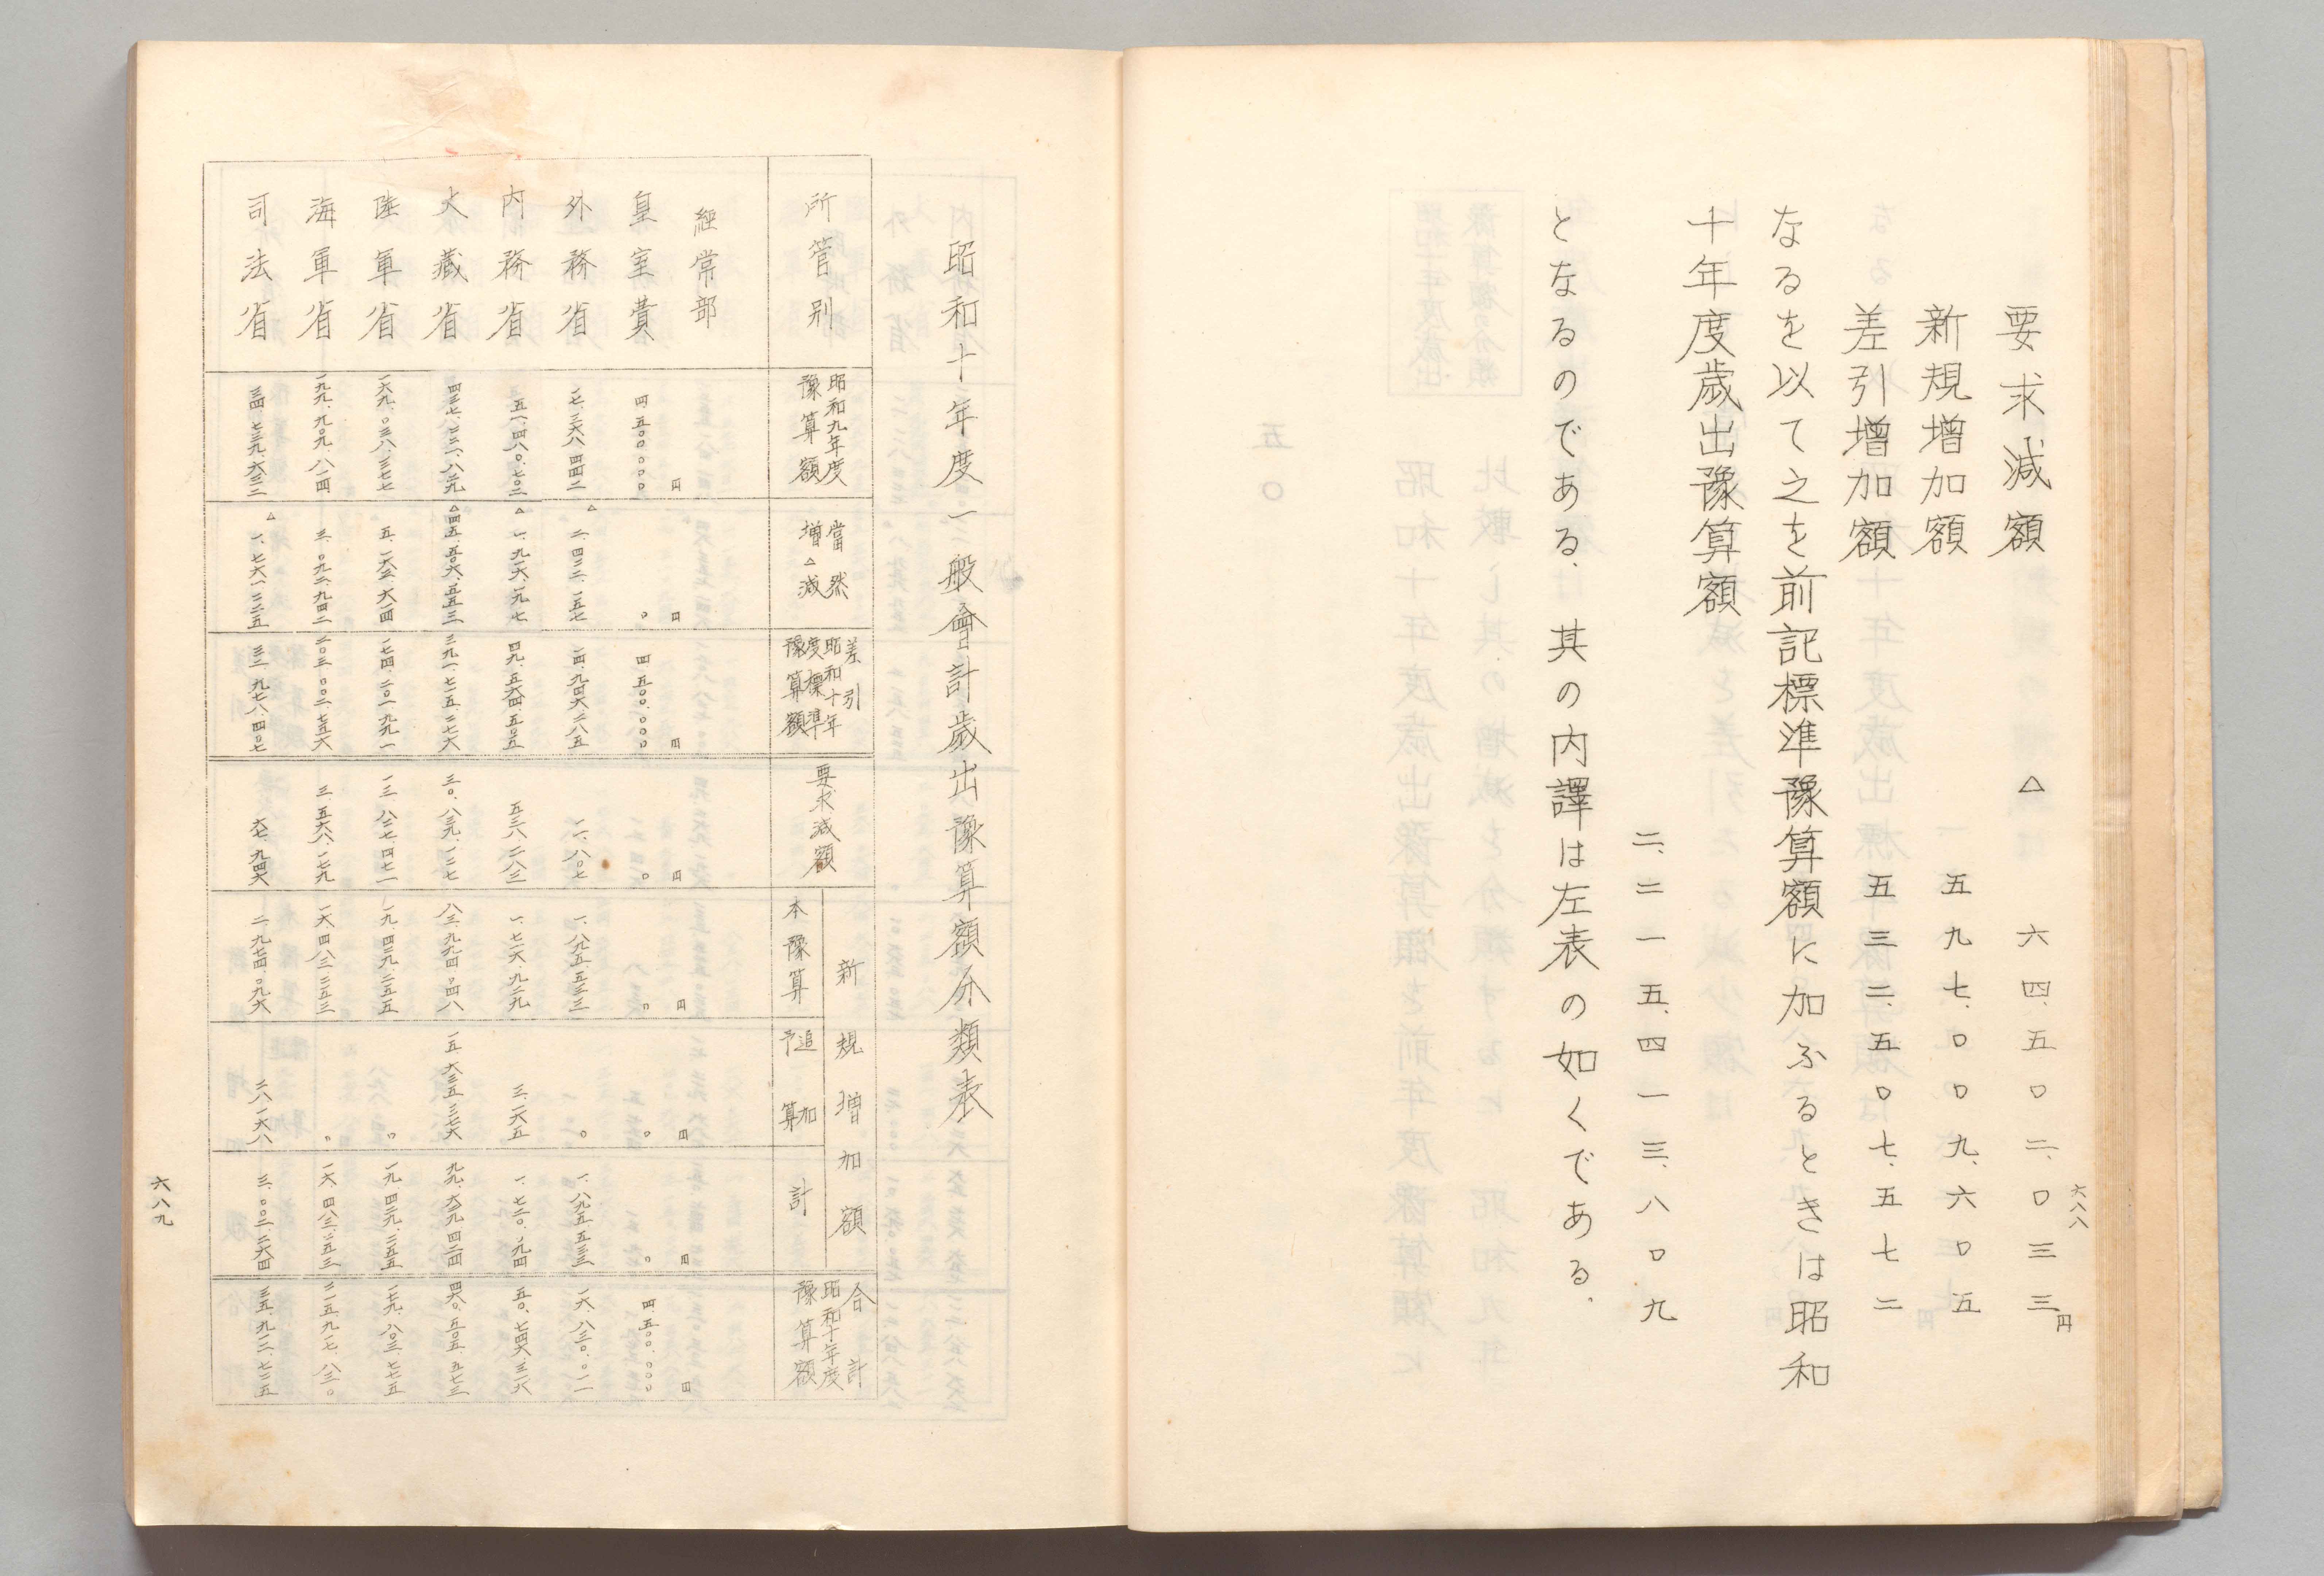 六八八
要求減額 △ 六四、五〇二、〇三三円
新規増加額 五九七、〇〇九、六〇五
差引増加額 五三二、五〇七、五七二
なるを以て之を前記標準豫算額に加ふるときは昭和
十年度歳出豫算額
二、二一五、四一三、八〇九
となるのである、其の内譯は左表の如くである、
昭和十年度一般會計歳出豫算額分類表
所管別 昭和九年度豫算額 當然増△減 差引昭和十年度標準豫算額 要求減額 新規増加額 本豫算 追加予算 計 合計昭和十年度豫算額
經常部 円 円 円 円 円 円 円 円
皇室費 四、五〇〇、〇〇〇 〇 四、五〇〇、〇〇〇 〇 〇 〇 〇 四、五〇〇、〇〇〇
外務省 一七、三六八、四四二 △二、四二二、一五七 一四、九四六、二八五 一一、八〇七 一、八九五、五三三 〇 一、八九五、五三三 一六、八三〇、〇一一
内務省 五一、四八〇、七〇二 △一、九一六、一九七 四九、五六四、五〇五 五三八、二八三 一、七一六、九二九 三、一六五 一、七二〇、〇九四 五〇、七四六、三一六
大藏省 四三七、二二一、八二九 △四五、五〇六、五五三 三九一、七一五、二七六 三〇、八三九、一二七 八三、九九四、〇四八 一五、六三五、三七六 九九、六二九、四二四 四六〇、五〇五、五七三
陸軍省 一六九、〇三八、三七七 五、一六三、六一四 一七四、二〇一、九九一 一三、八二七、四七一 一九、四二九、二五五 〇 一九、四二九、二五五 一七九、八〇三、七七五
海軍省 一九九、九〇九、八一四 三、〇九二、九四二 二〇三、〇〇二、七五六 三、五六八、一七九 一六、四八三、二五三 〇 一六、四八三、二五三 二一五、九一七、八三〇
司法省 三四、七三九、六三二 △一、七六一、二二五 三二、九七八、四〇七 六七、九四六 二、九七四、〇九六 二八、一六八 三、〇〇二、二六四 三五、九一二、七二五
六八九